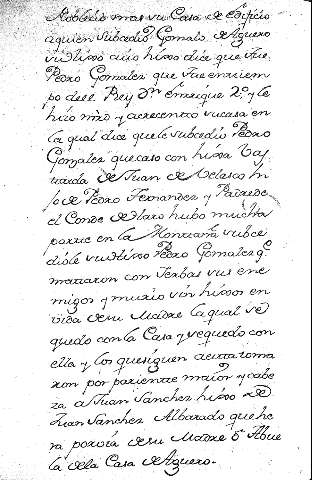 Nobleció mas su Casa de Edificio
aquien Subcedio Gonzalo de Aguero
su hixo cuio hixo dice que fue
Pedro Gonzalez que fue en tiem
po de el Rey Dn Enrrique 2º y le
hizo mrd y acrecento su casa en
la qual dice que le subcedio Pedro
Gonzalez que caso con hixa Bas
tarda de Juan de Velasco hi
jo de Pedro Fernandez y Padre de
el Conde de Haro hubo mucha
parte en la Montaña subce
diole su hixo Pedro Gonzalez q.
mataron con Yerbas sus ene
migos y murio sin hixos en
vida de su Madre la qual se
quedo con la Casa y sequedo con
ella y los que siguen a esta toma
ron por pariente maior y cabe
za a Juan Sanchez hixo de
Juan Sanchez Albarado que he
ra por via de su Madre ó Abue
la de la Casa de Aguero.